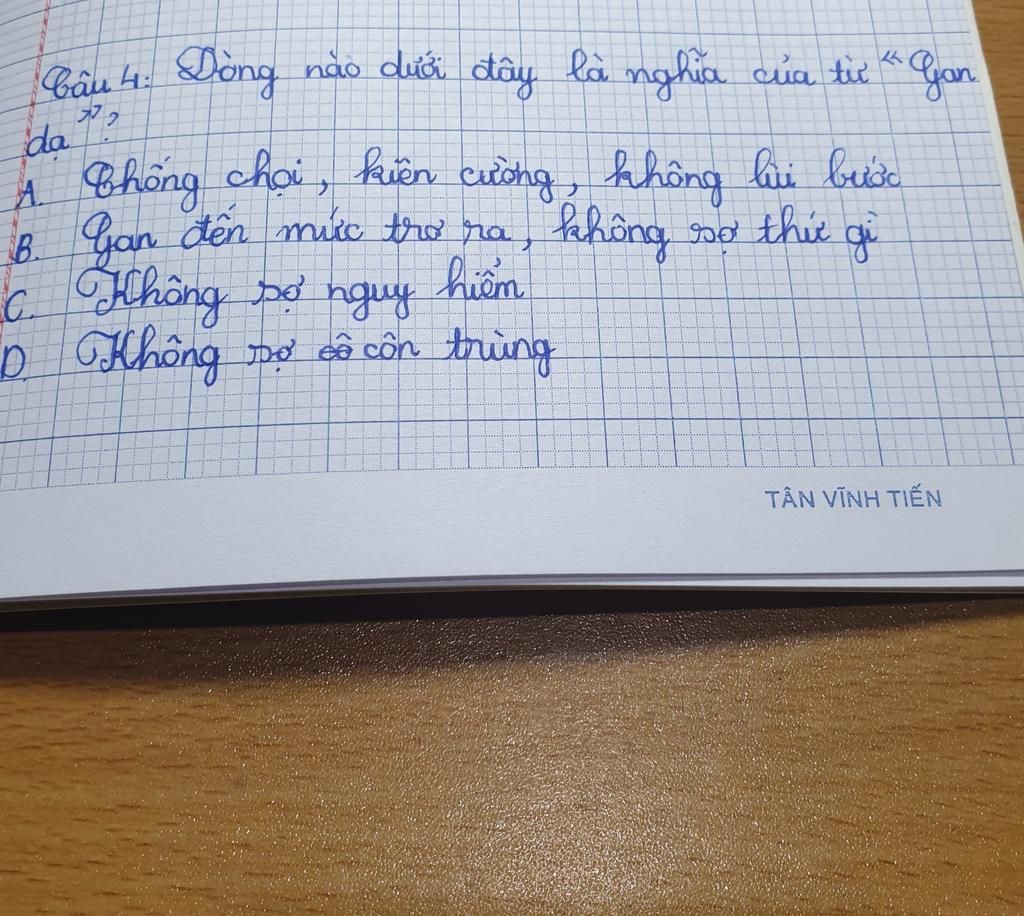 Câu 4: Dòng nào dưới đây là nghĩa của từ "Gan
dạ"?
A. Chống chọi, kiên cường, không lùi bước
B. Gan đến mức trơ ra, không sợ thứ gì
C. Không sợ nguy hiểm
D. Không sợ côn trùng
TÂN VĨNH TIẾN